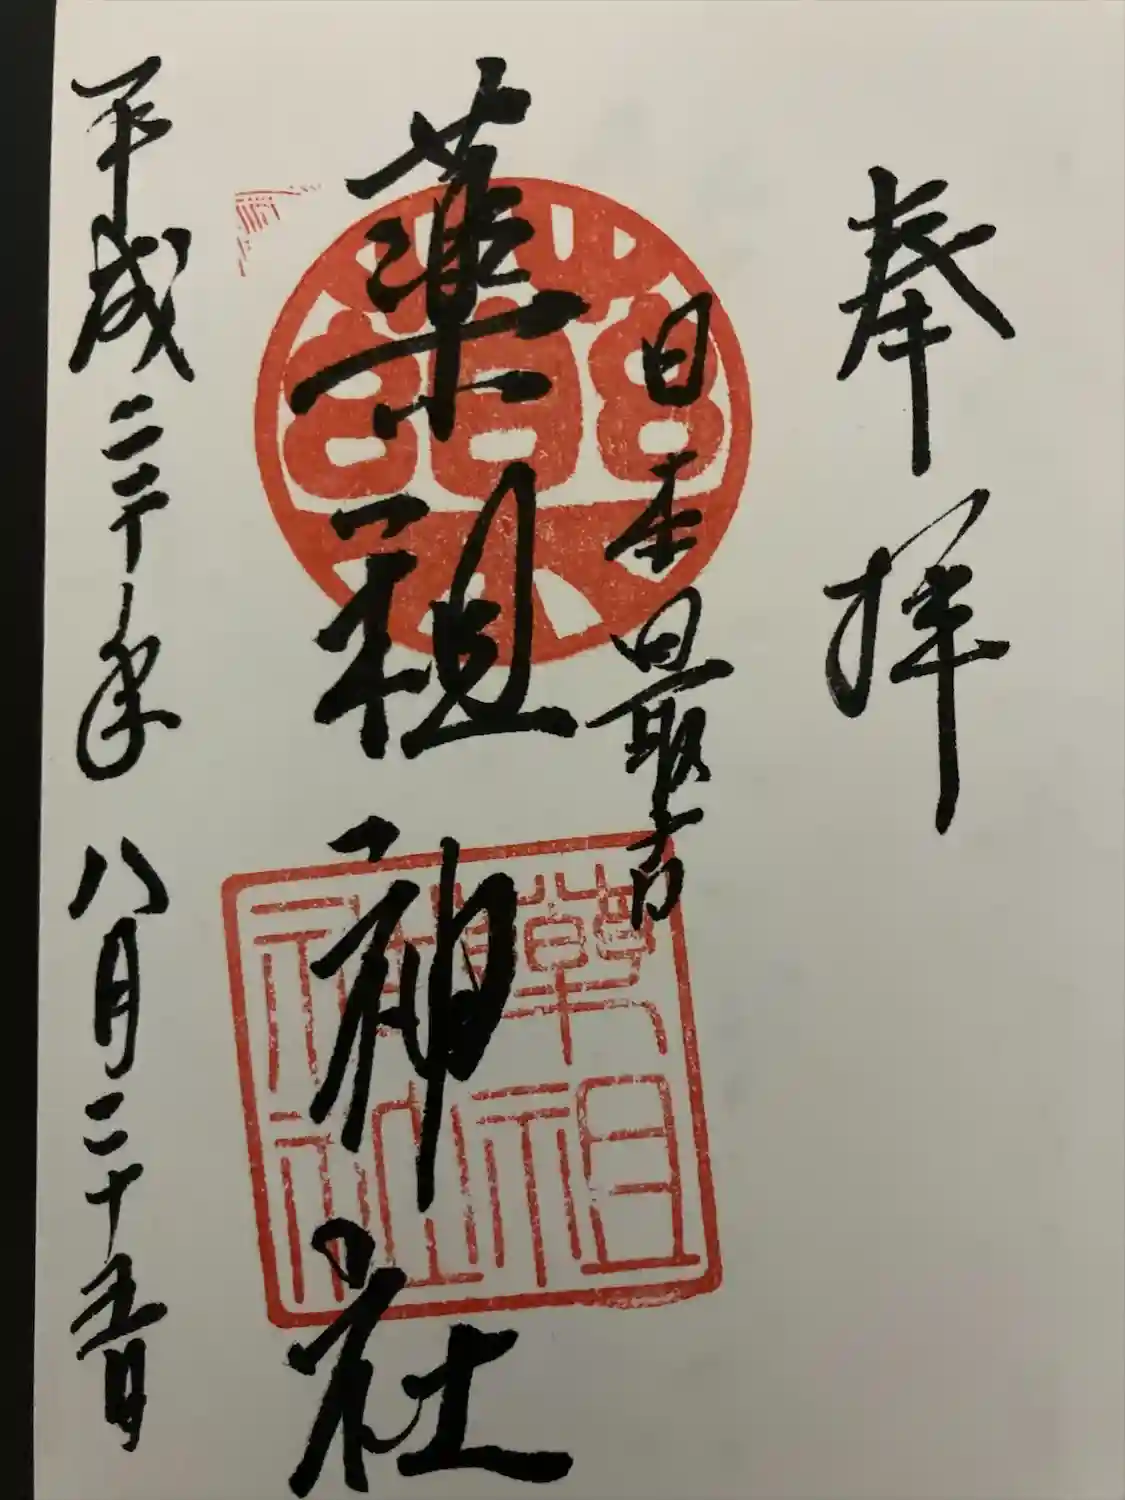 奉拝
日本最古
薬祖神社
平成三十年八月二十五日
藥祖
神社